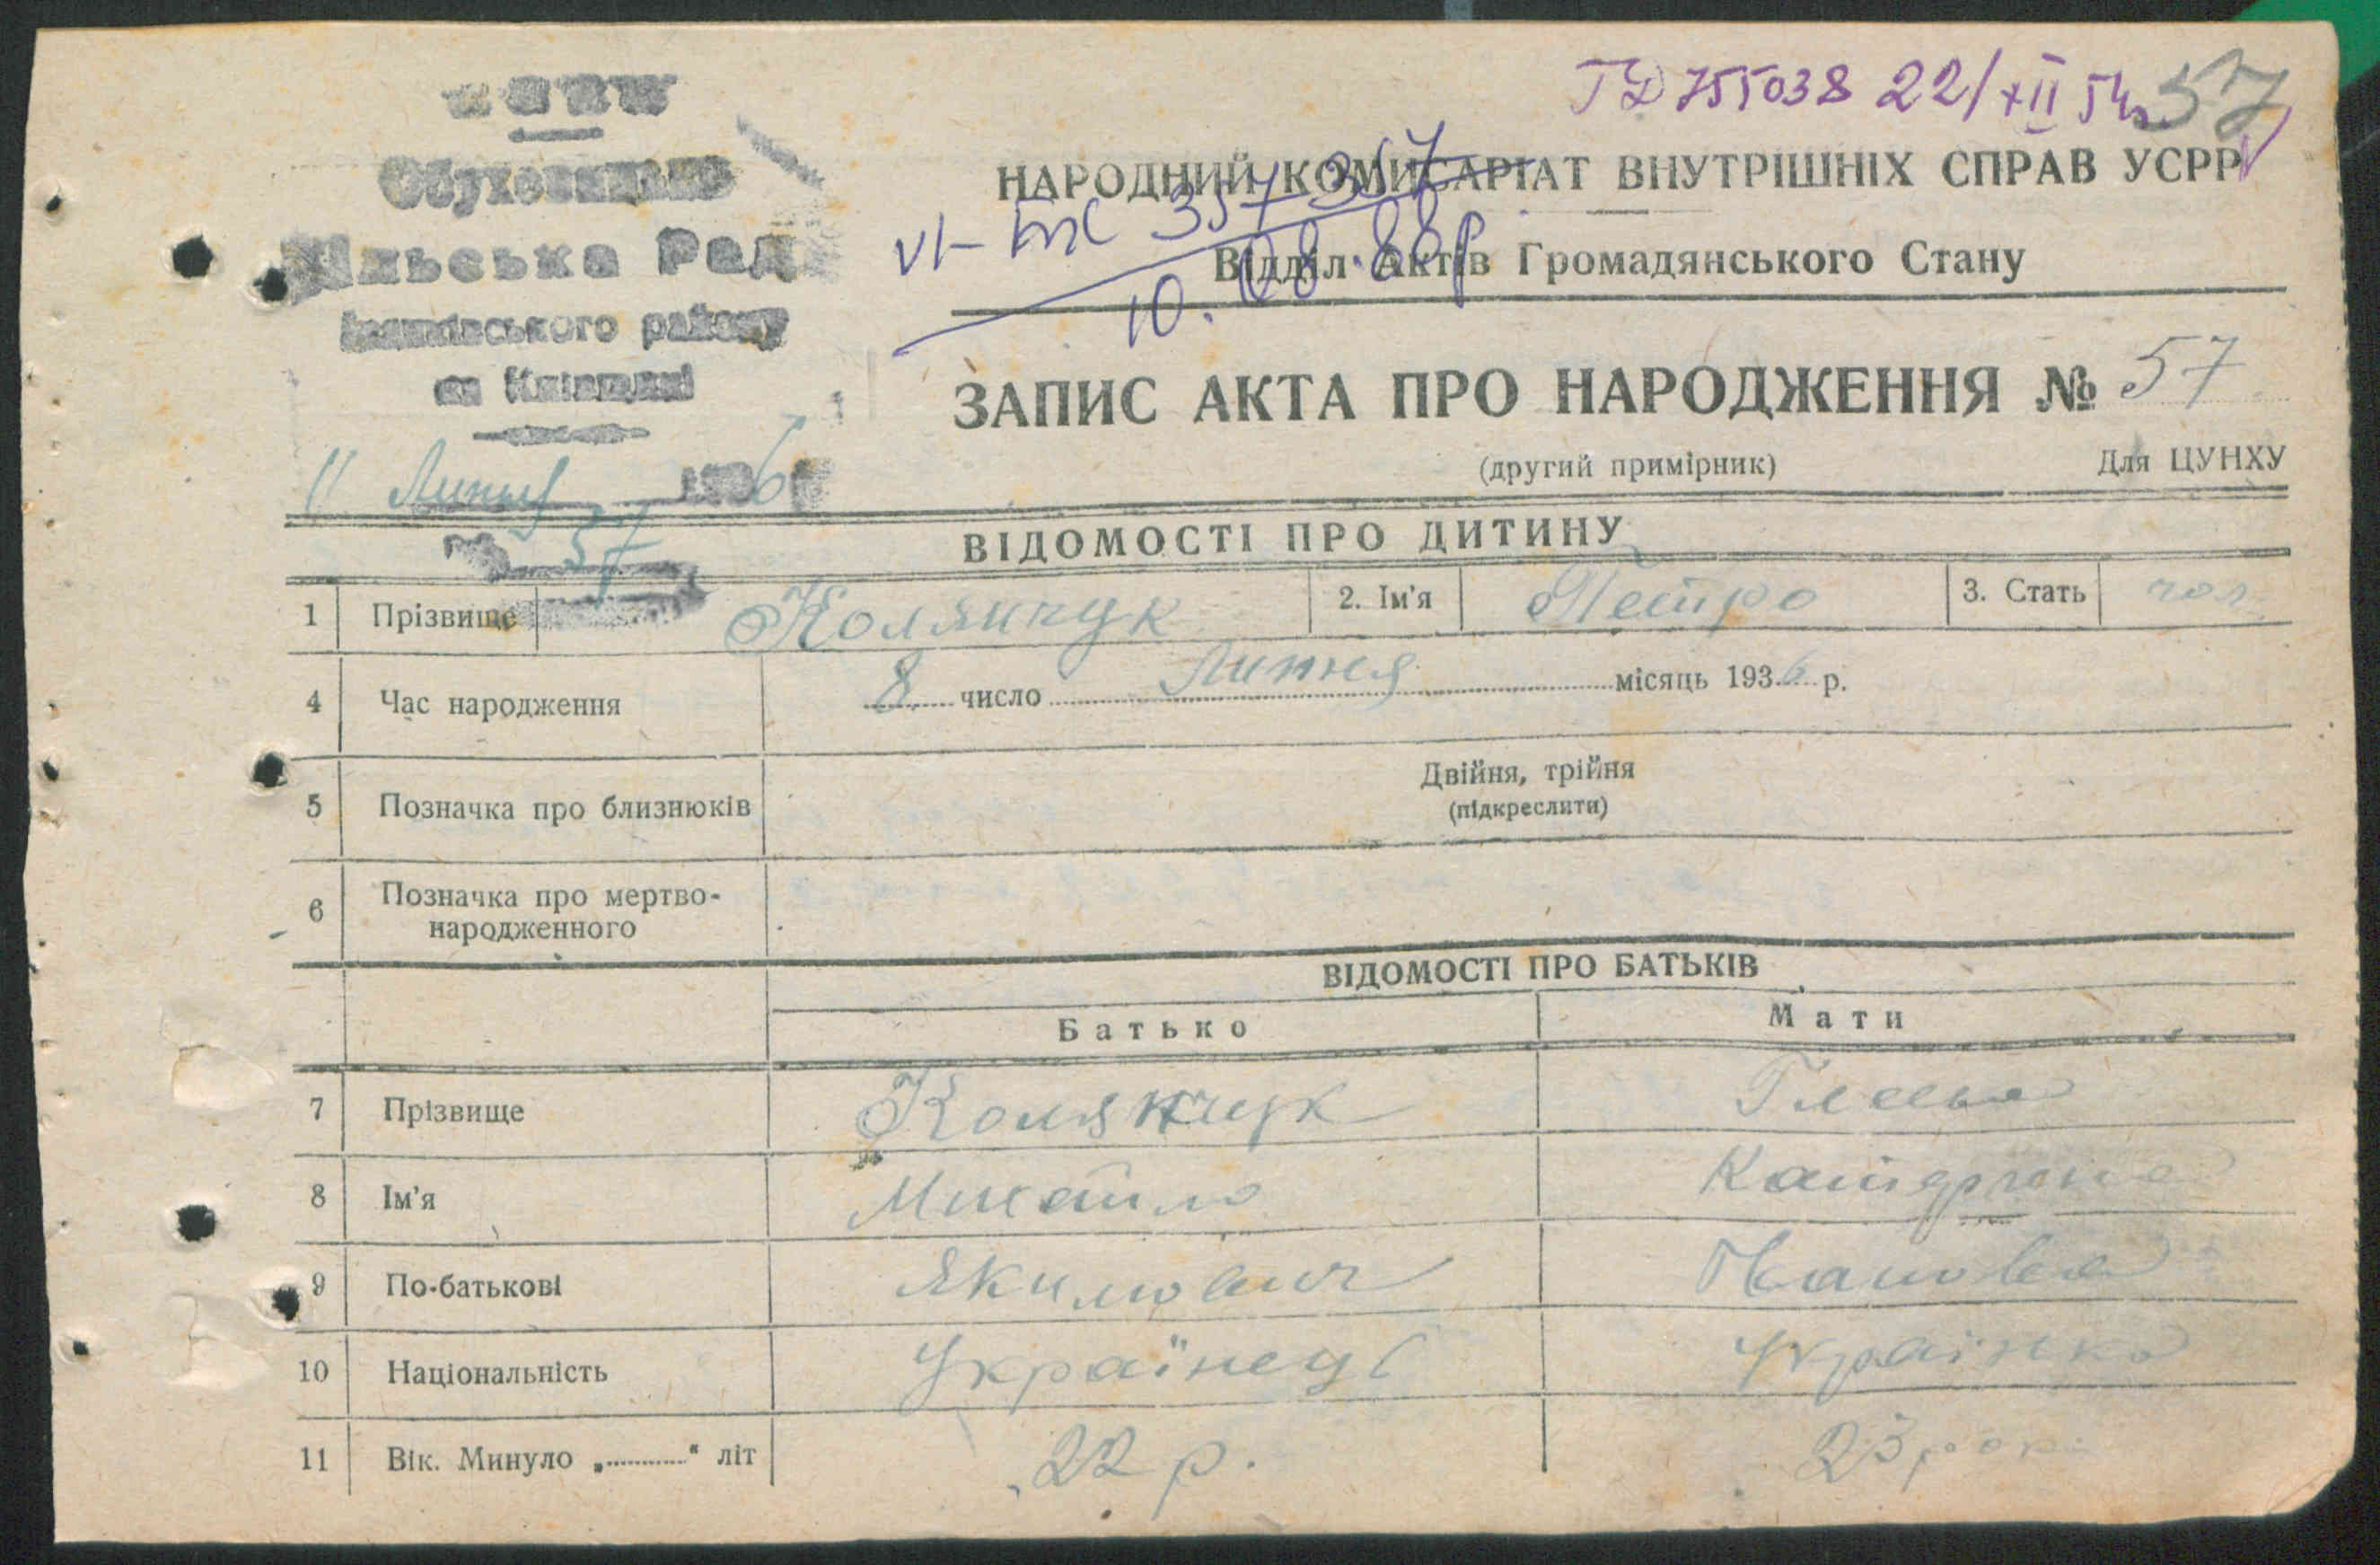 ГД 755038 22/XII 54 57
НАРОДНИЙ КОМИСАРІАТ ВНУТРІШНІХ СПРАВ УСРР
357 367
Відділ Актів Громадянського Стану
10. 08. 88р
Сільська Рада
району
на Київщині
ЗАПИС АКТА ПРО НАРОДЖЕННЯ № 57
(другий примірник) Для ЦУНХУ
11 Липня 1936
57
ВІДОМОСТІ ПРО ДИТИНУ
1 Прізвище Колянчук 2. Ім'я Петро 3. Стать чол
4 Час народження 8 число Липня місяць 1936 р.
5 Позначка про близнюків Двійня, трійня
(підкреслити)
6 Позначка про мертво-
народженного
ВІДОМОСТІ ПРО БАТЬКІВ
Батько Мати
7 Прізвище Колянчук
8 Ім'я Михайло Катерина
9 По-батькові Якимович
10 Національність Українець Українка
11 Вік. Минуло „..........“ літ 22 р. 23 рок